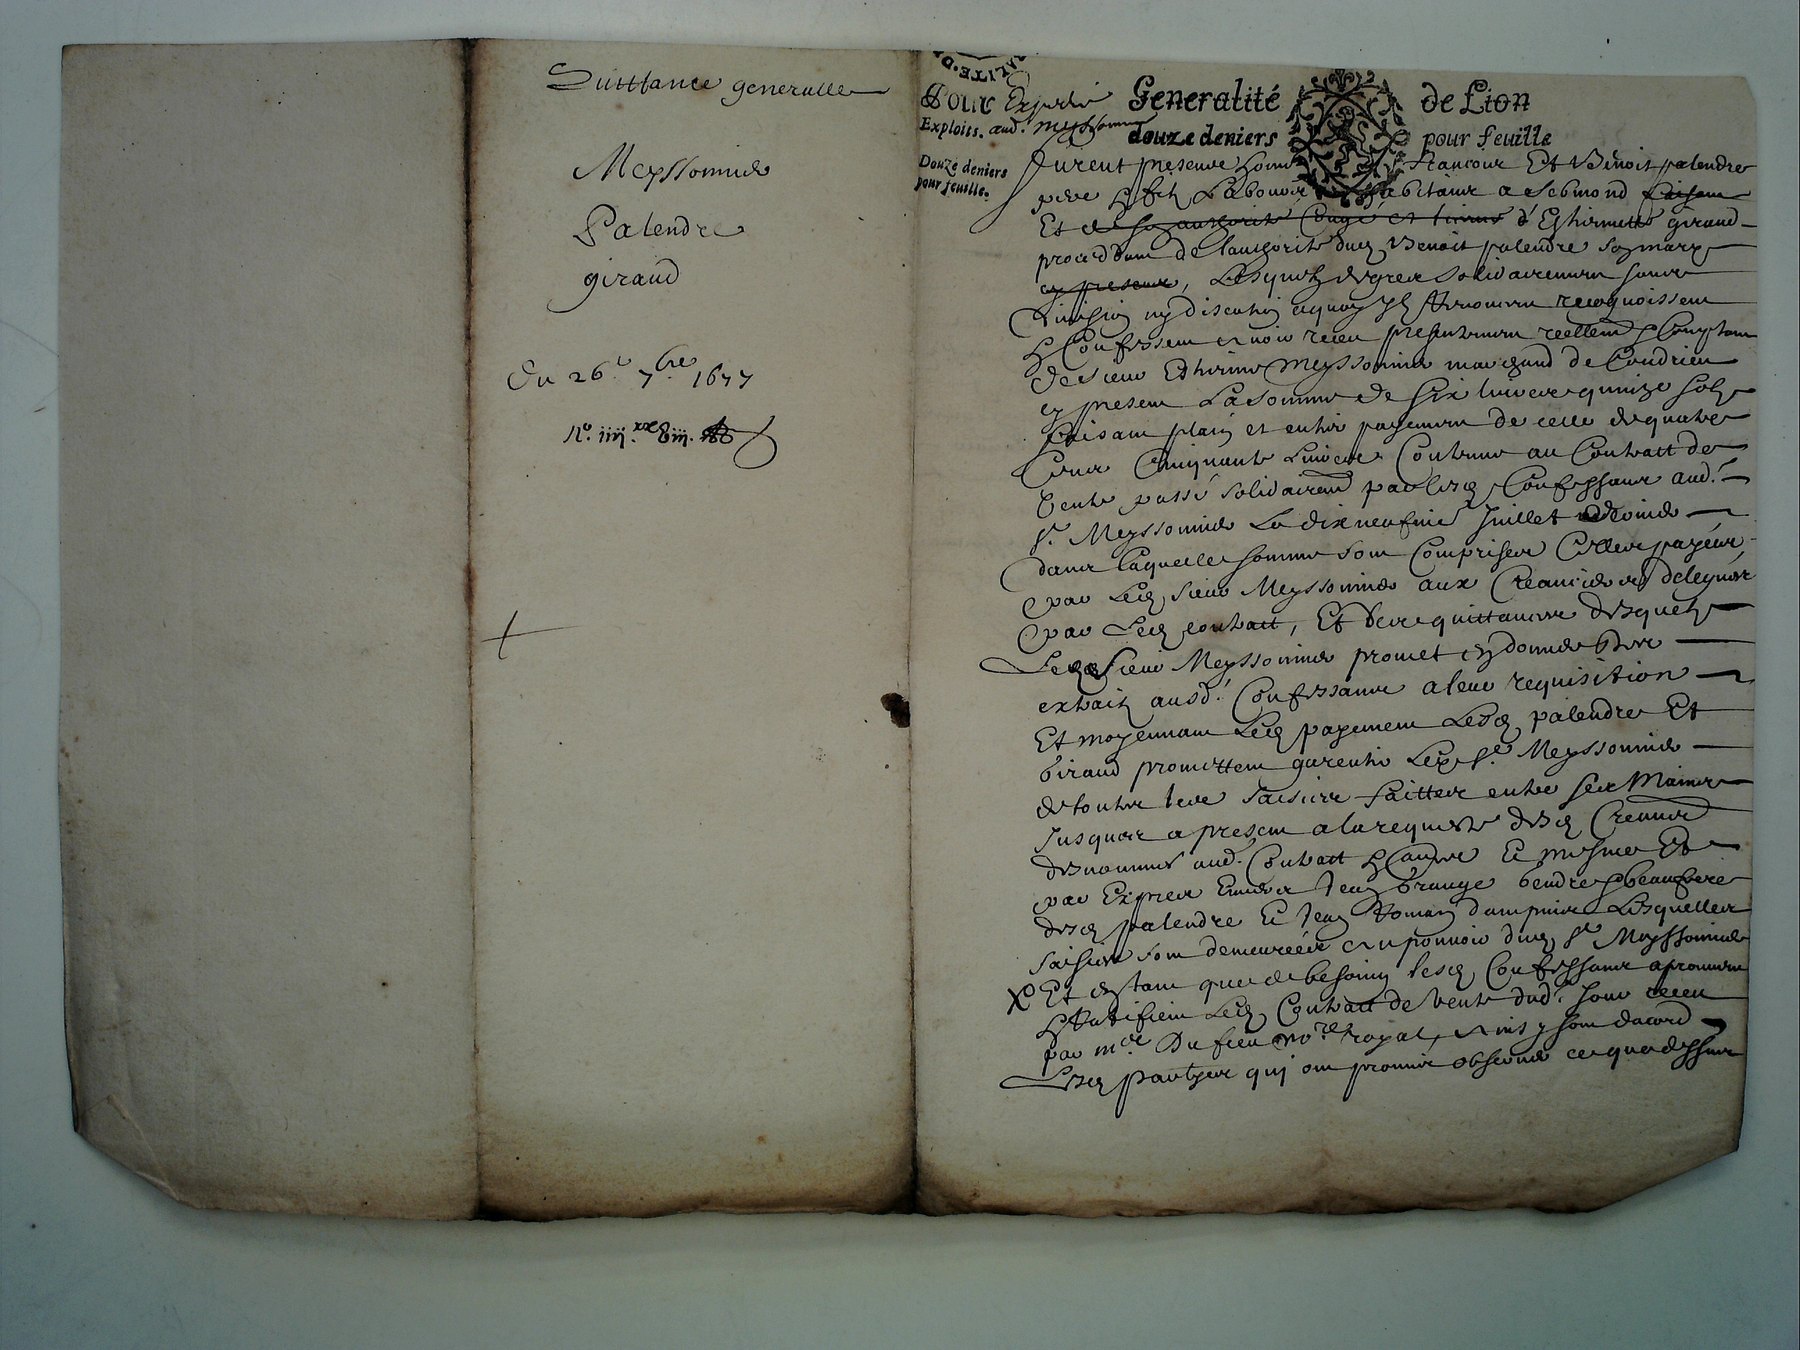 Quittance generalle
Meyssonnier
Palendre
giraud
Du 26e 7bre 1677
No. iiij.xx Viij.
ALITE·D
Pour Expedié Generalité de Lion
Exploits. aud. Meyssonnier douze deniers pour feuille
Douze deniers
pour feuille.
furent presens Françour Et Benoit palendre
pere & filz Laboureur habitans a
Et de Cong et licence d'Esthiennette giraud
procedant de lauthorité dud Benoit palendre so mary
cy presens, Lesquelz de gré solidairement sans
division ny discution aquoy ilz Renoncent recognoissent
& Confessent avoir receu presentement reellement & Comptant
de sieur Esthienne Meyssonnier marchand de Condrieu
cy present La somme de six livres quinze solz
faisant plain et entier payement de celle de quatre
Cens Cinquante Livres Contenue au Contract de
Vente passé solidairement par lesd Confessans aud.
Sr. Meyssonnier Le dixneufme Juillet dernier
dans laquelle somme sont Comprises Celles payées
par Led sieur Meyssonnier aux Creanciers delegués
par Led contract, Et des quittances desquelz
Led Sieur Meyssonnier promet en donner des
extraitz ausd. Confessans a leur requisition
Et moyennant Led payement Lesd palendre Et
Giraud promettent garentir Led Sr. Meyssonnier
de toutes les saisies faittes entre ses Mains
Jusques a present a la requeste desd Creanciers
desnommés aud. Contract & autres Et mesmes Et
par Exprez Jean Grange Gendre & beaufrere
desd palendre Et Jean Romain dampuis Lesquelles
saisies sont demeurées au pouvoir dud Sr Meyssonnier
Et en tant que de besoing lesd Confessans aprouvent
& Ratifient Led Contract de vente dud. Jour receu
par Me. Dufieu nore royal, Ainsy sont d'acord
Lesd parties qui ont promis observer ce que dessus